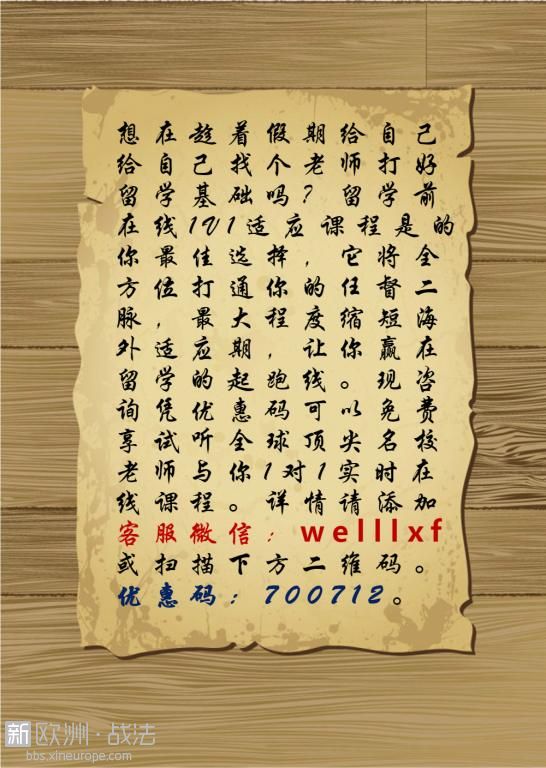 想在趁着假期给自己
给自己找个老师打好
留学基础吗？留学前
在线1V1适应课程是的
你最佳选择，它将全
方位打通你的任督二
脉，最大程度缩短海
外适应期，让你赢在
留学的起跑线。现咨
询凭优惠码可以免费
享试听全球顶尖名校
老师与你1对1实时在
线课程。详情请添加
客服微信：welllxf
或扫描下方二维码。
优惠码：700712。
新欧洲·战法
bbs.xineurope.com